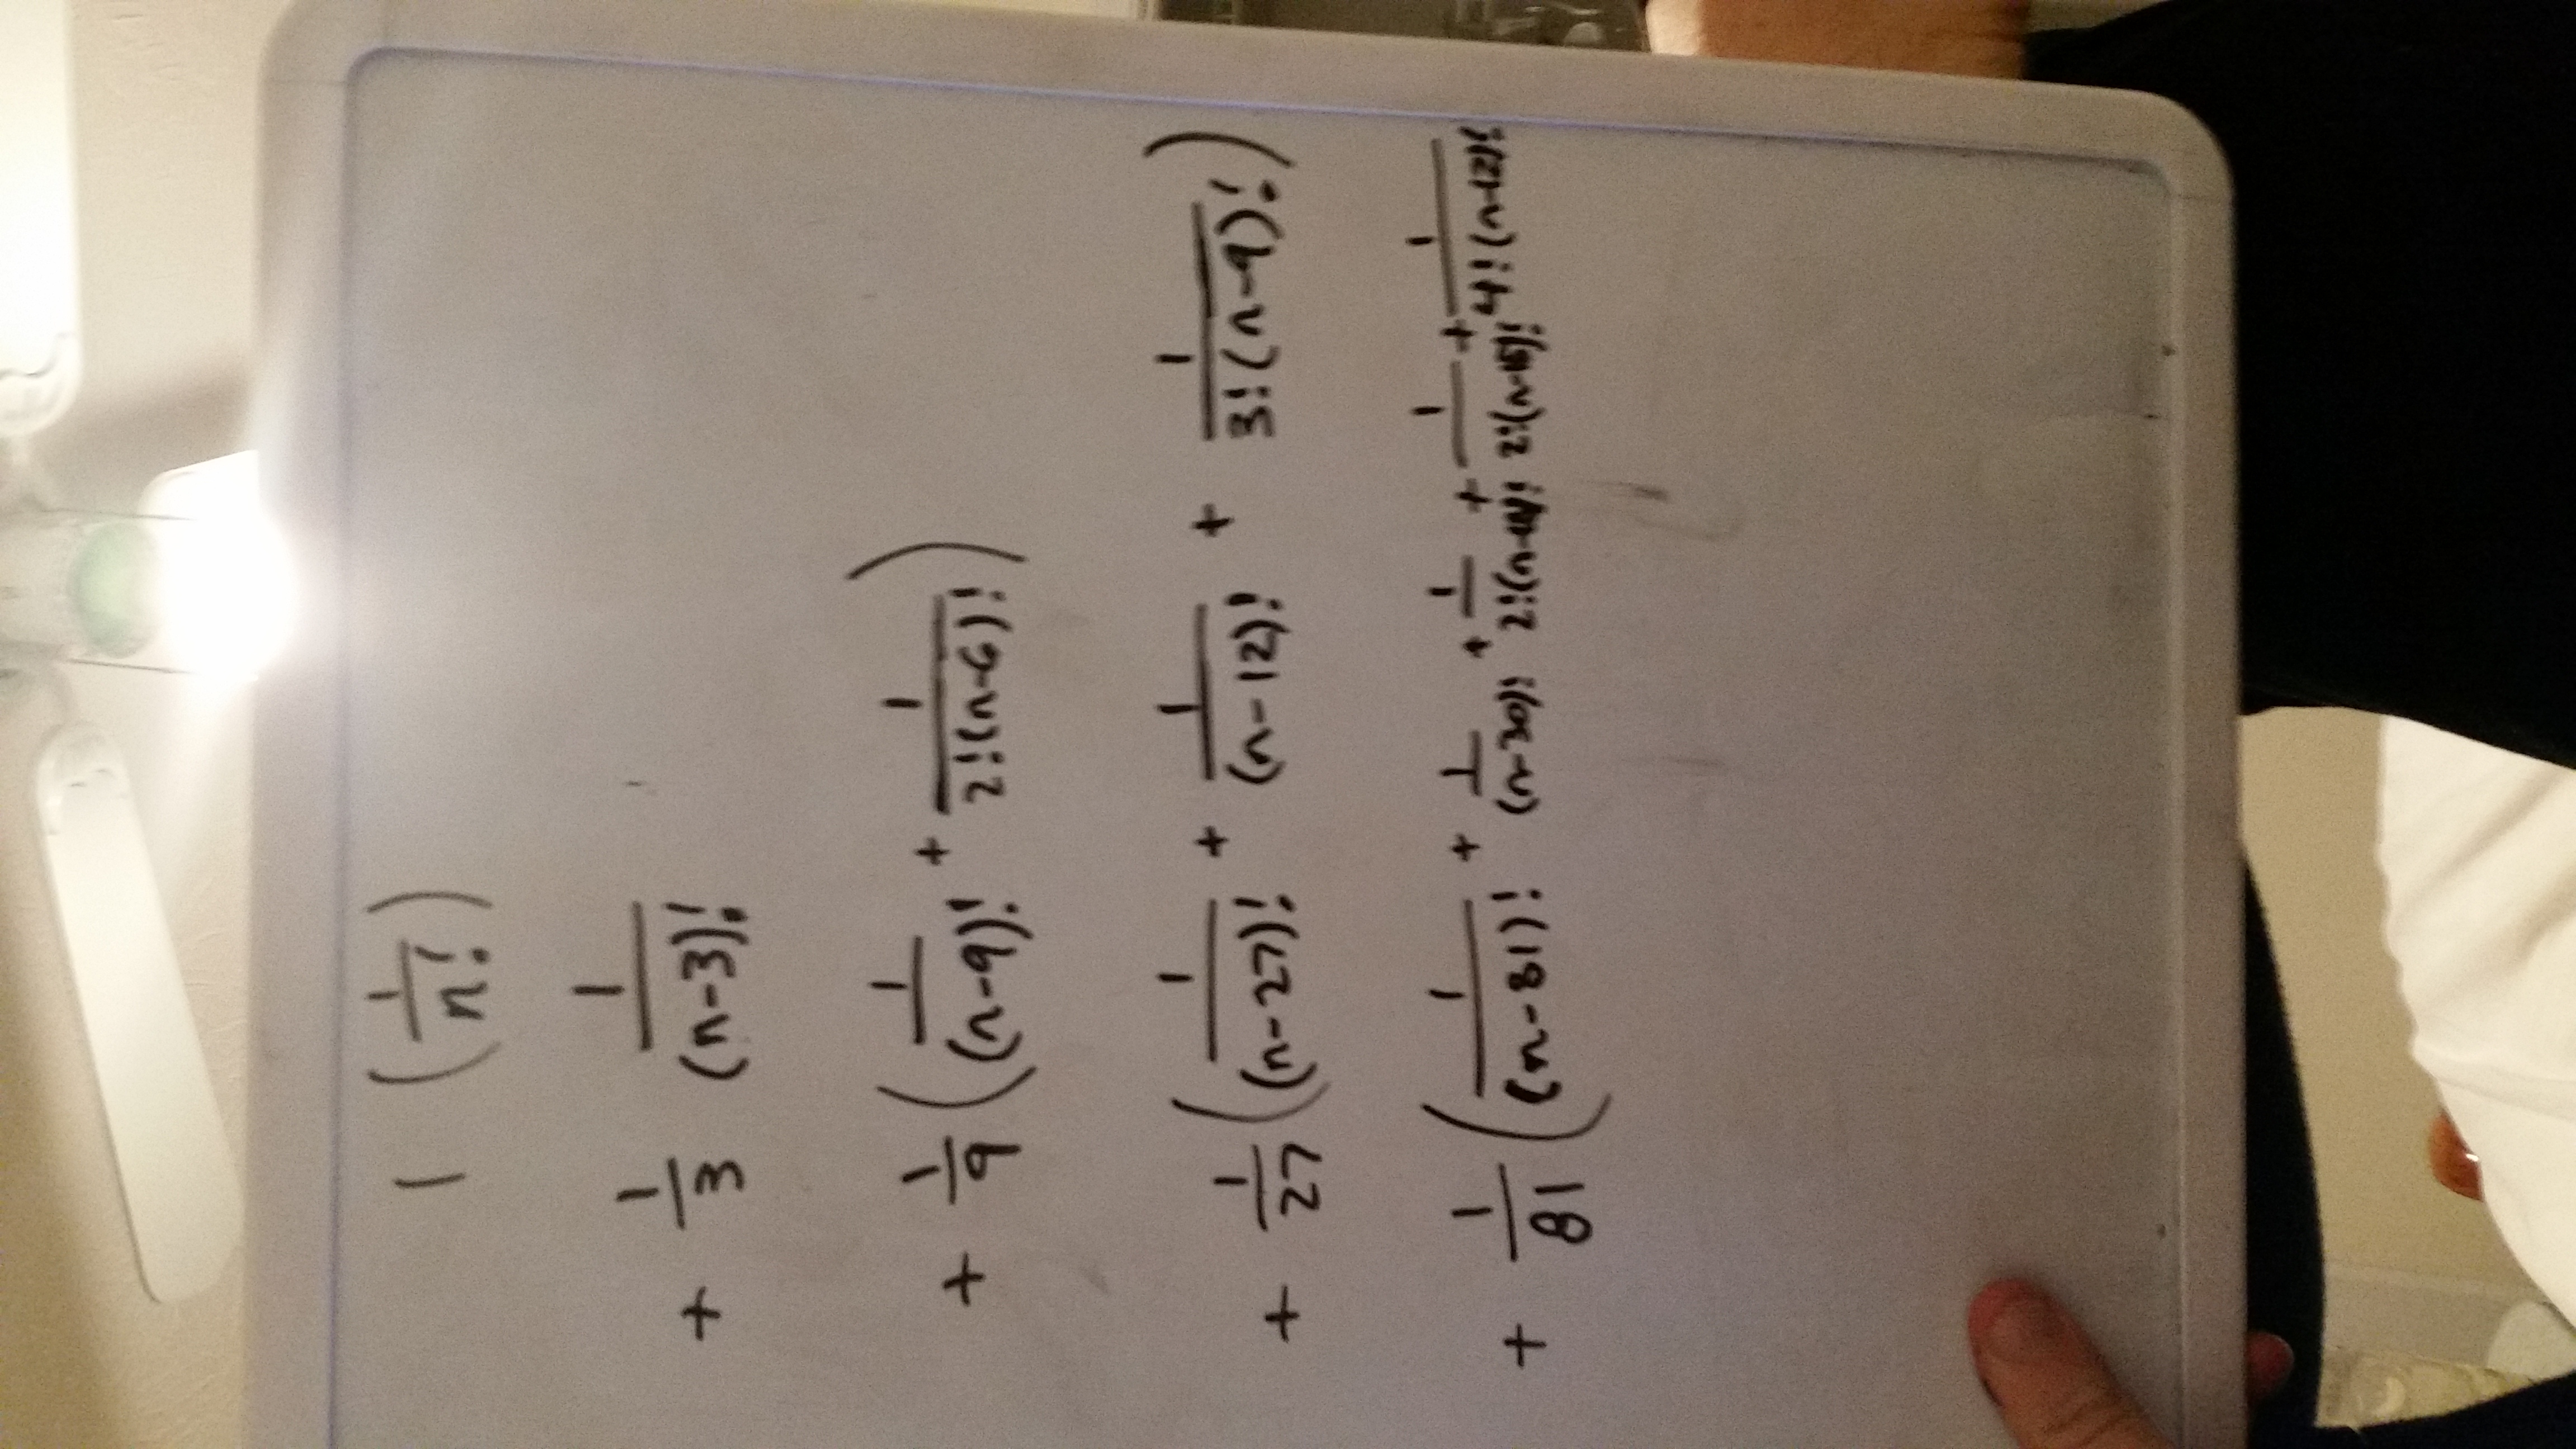 1 (1/n!)
+ 1/3 1/(n-3)!
+ 1/9 (1/(n-9)! + 1/2!(n-6)!)
+ 1/27 (1/(n-27)! + 1/(n-12)! + 1/3!(n-9)!)
+ 1/81 (1/(n-81)! + 1/(n-30)! + 1/2!(n- )! + 1/2!(n-15)! + 1/4!(n-12)!